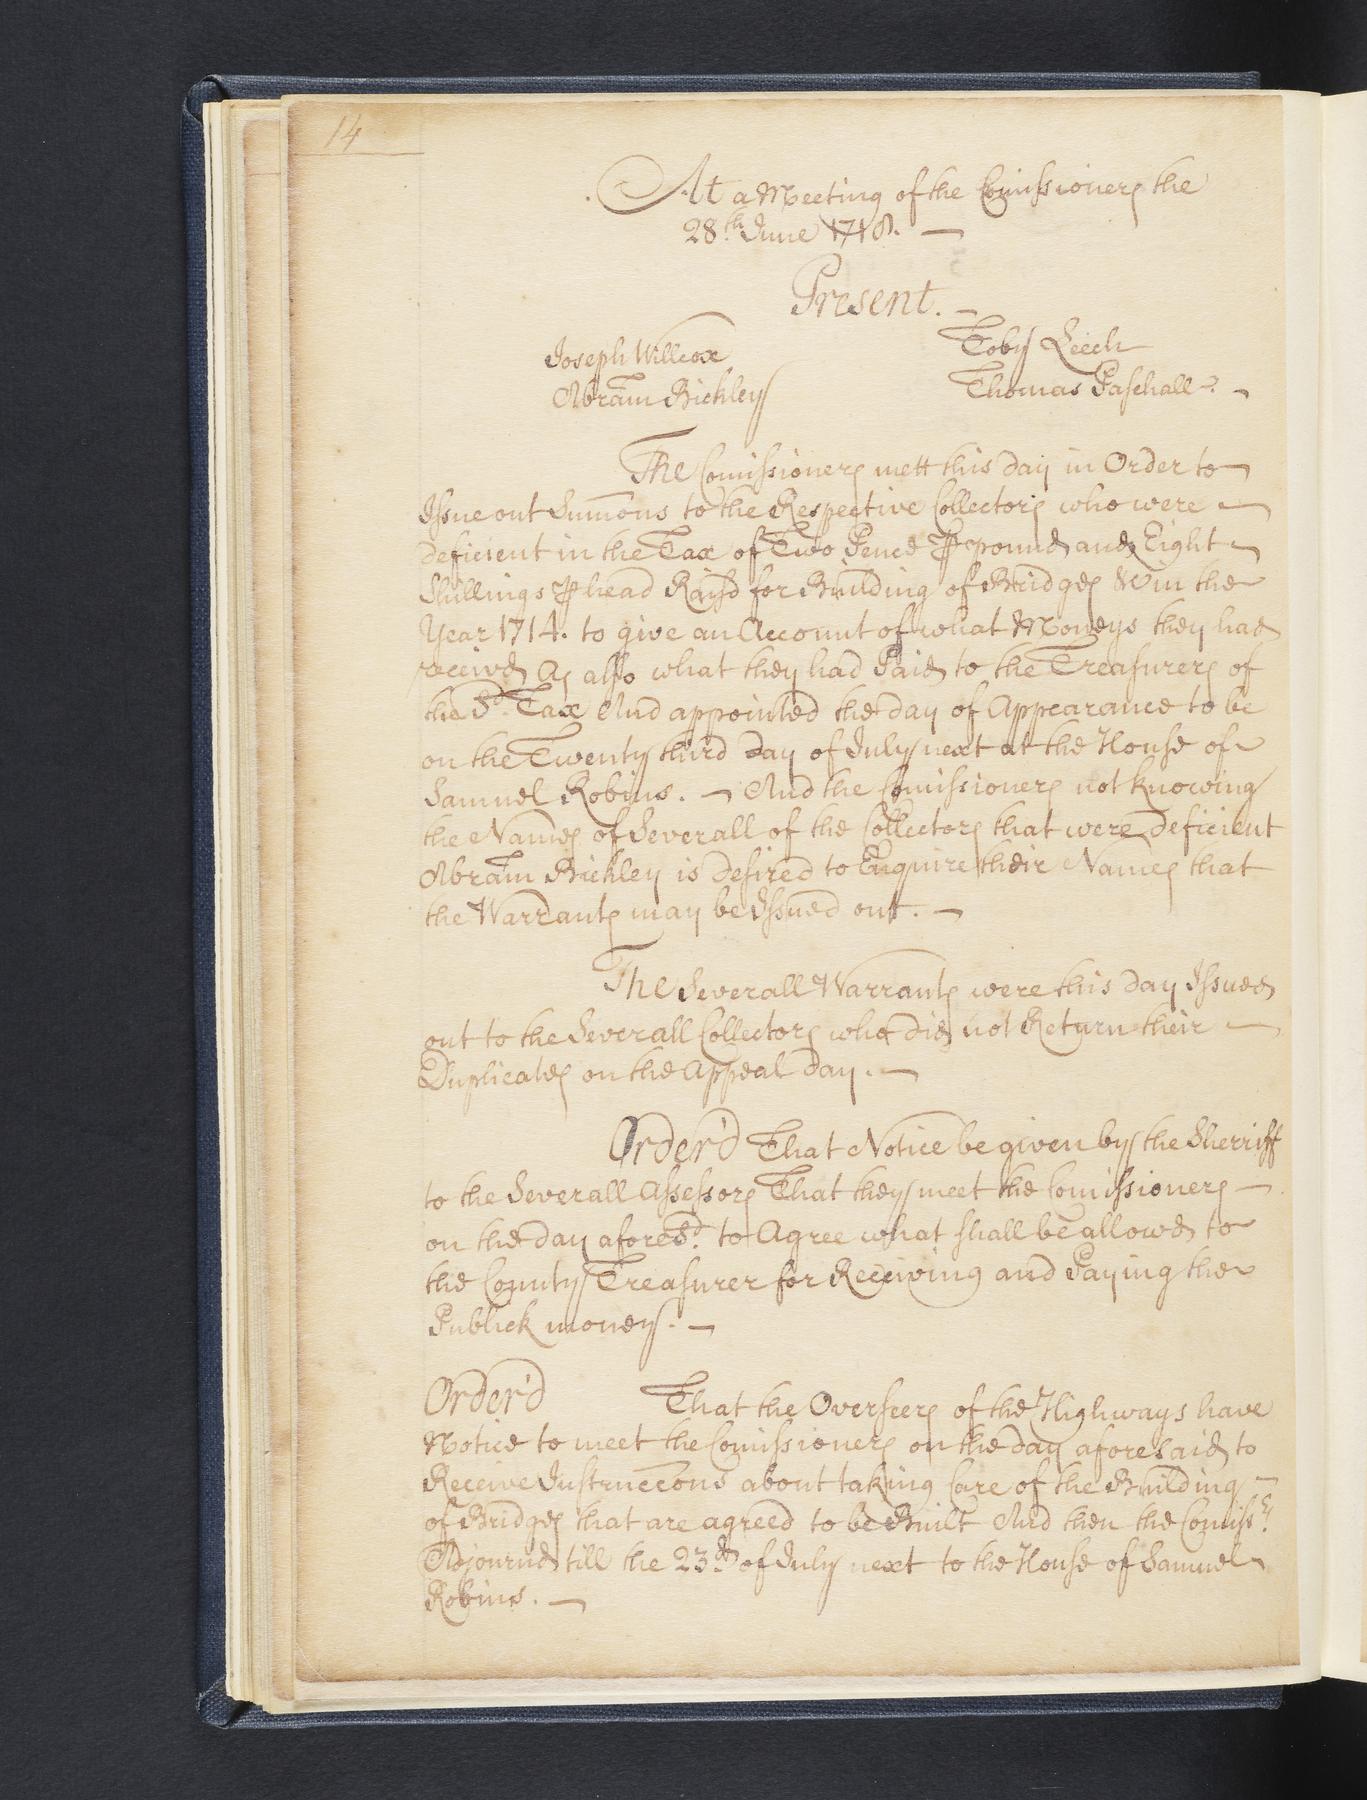 14
At a Meeting of the Comissioners the
28th June 1718. —
Present. —
Joseph Willcox
Toby Leech
Abram Bickley
Thomas Paschall. —
The Comissioners mett this day in Order to
Issue out Summons to the Respective Collectors who were —
deficient in the Tax of Two Pence ⅌ pound and Eight
Shillings ⅌ head Raisd for Building of Bridges &c in the
Year 1714. to give an Account of what Moneys they had
receivd As also what they had Paid to the Treasurers of
the Sd. Tax And appointed the day of Appearance to be
on the Twenty third day of July next at the House of
Samuel Robins. — And the Comissioners not knowing
the Names of Severall of the Collectors that were deficient
Abram Bickley is desired to Enquire their Names that
the Warrants may be Issued out. —
The Severall Warrants were this day Issued
out to the Severall Collectors who did not Return their —
Duplicates on the Appeal day. —
Order'd That Notice be given by the Sherriff
to the Severall Assessors That they meet the Comissioners —
on the day aforesd. to Agree what shall be allowd to
the County Treasurer for Receiving and Paying the
Publick money. —
Order'd That the Overseers of the Highways have
Notice to meet the Comissioners on the day aforesaid to
Receive Instruccons about taking Care of the Building —
of Bridges that are agreed to be Built And then the Comissrs.
Adjournd till the 23d. of July next to the House of Samuel
Robins. —